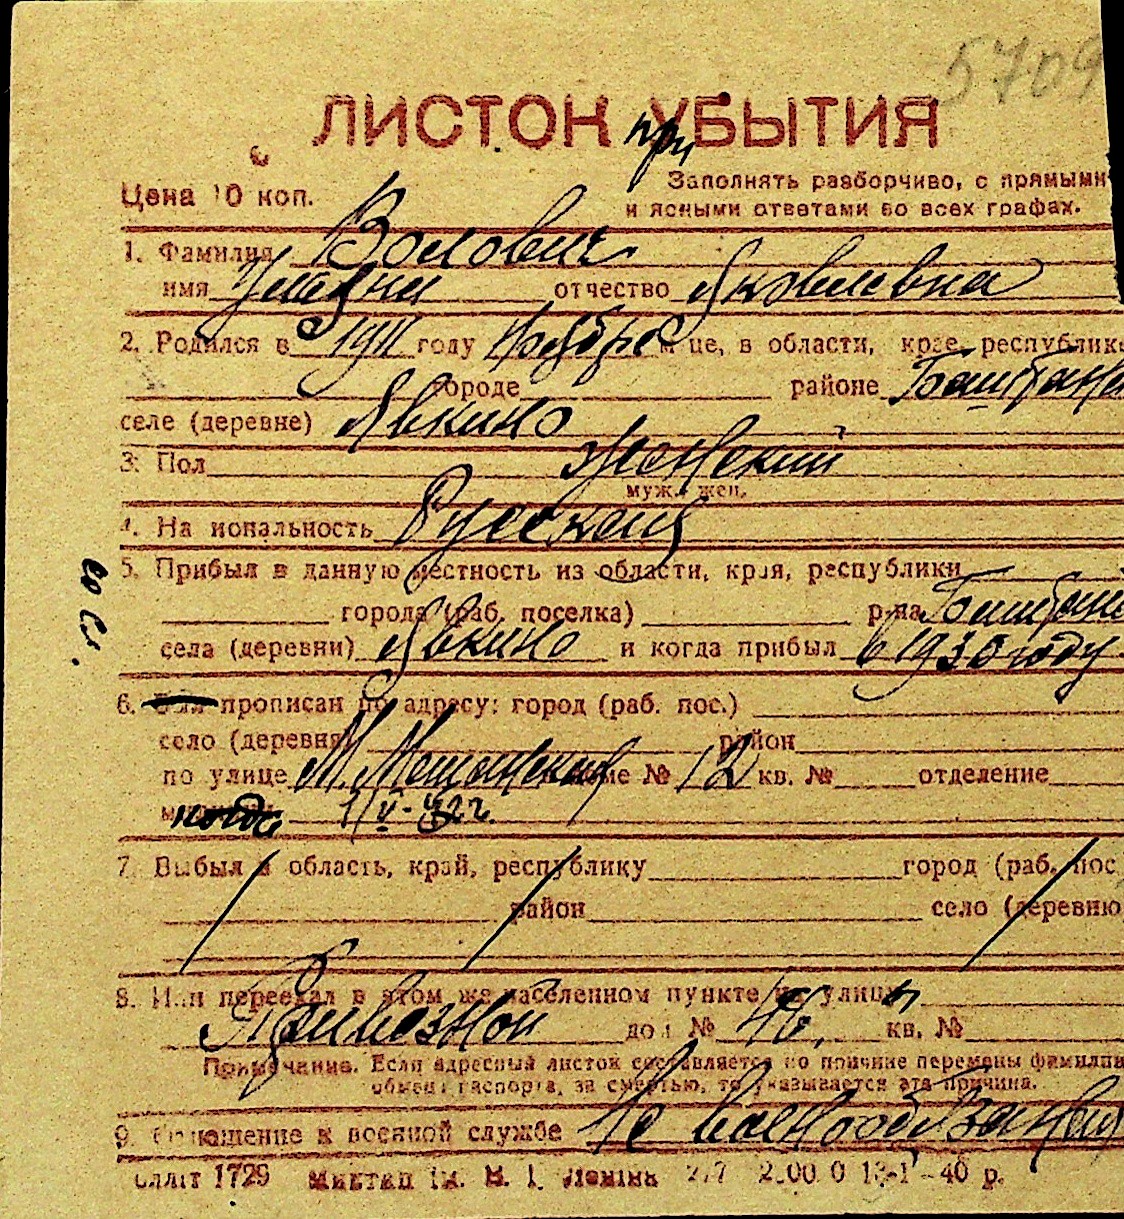 5709
ЛИСТОК УБЫТИЯ
при
Цена 10 коп.
Заполнять разборчиво, с прямыми
и ясными ответами во всех графах.
1. Фамилия Волович
имя отчество Яковлевна
2. Родился в 1911 году Ноябре м-це, в области, крае, республике
городе районе Баштанс
селе (деревне) Явкино
3. Пол женский
муж., жен.
4. Национальность Русская
5. Прибыл в данную местность из области, края, республики
города (раб. поселка) р-на Баштанс
села (деревни) Явкино и когда прибыл в 1930 году
6. Был прописан по адресу: город (раб. пос.)
село (деревня) район
по улице М. Мещанская доме № 12 кв. № отделение
когда 1/V-42г.
7. Выбыл в область, край, республику город (раб. пос
район село (деревню
8. Или переехал в этом же населенном пункте на улицу
Привозной дом № 46, кв. №
Примечание. Если адресный листок составляется по причине перемены фамилии
обмена паспорта, за смертью, то указывается эта причина.
9. Отношение к военной службе Не военнообязанная
1729 ім. В. І. Леніна 40 р.